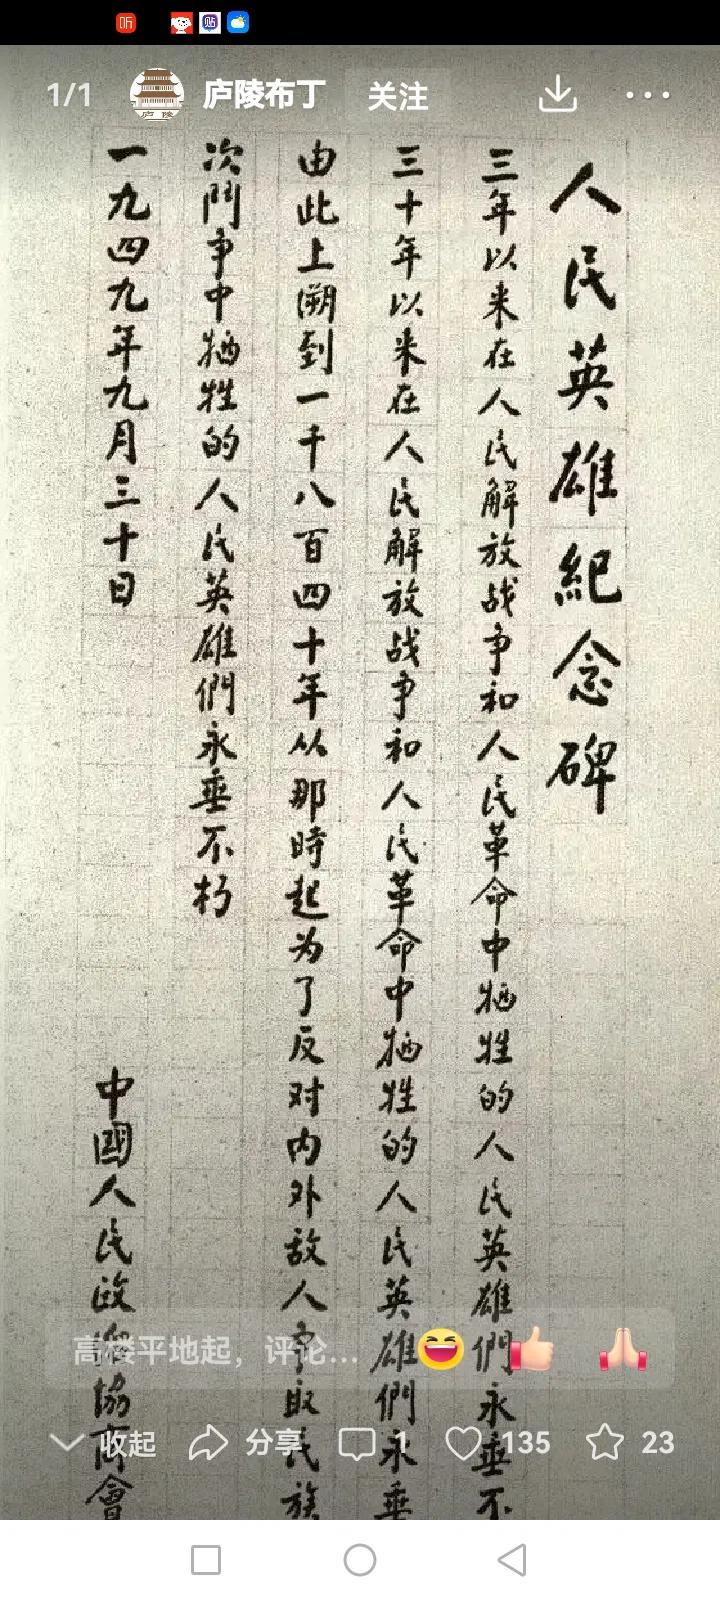 听
贴
1/1
庐陵布丁
关注
庐陵
人民英雄紀念碑
三年以来在人民解放战争和人民革命中牺牲的人民英雄們永垂不
三十年以来在人民解放战争和人民革命中牺牲的人民英雄們永垂
由此上溯到一千八百四十年从那時起为了反对内外敌人争取民族
次鬥争中牺牲的人民英雄們永垂不朽
一九四九年九月三十日
中國人民政治協商會
高楼平地起，评论...
收起
分享
1
135
23